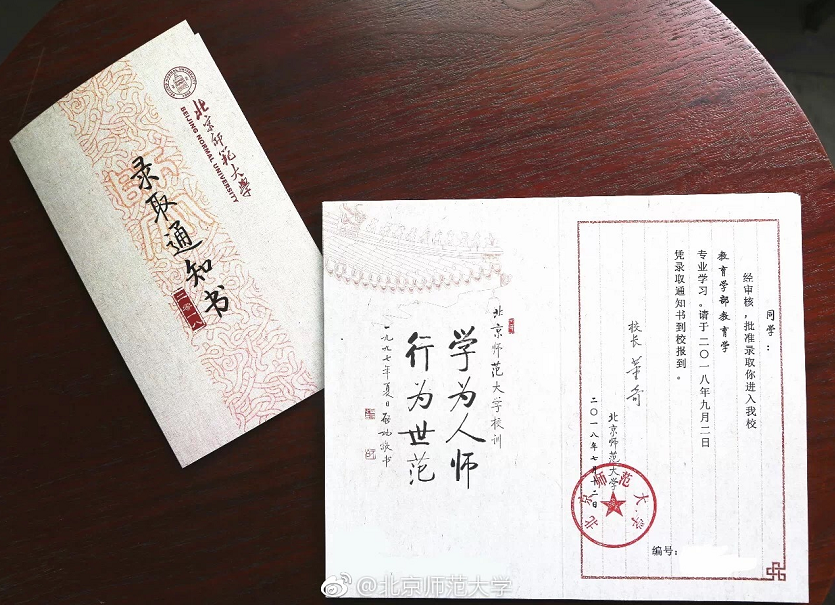 北京师范大学
BEIJING NORMAL UNIVERSITY
录取通知书
二零一八
北京师范大学校训
学为人师
行为世范
一九九七年夏日启功敬书
同学：
经审核，批准录取你进入我校
教育学部教育学
专业学习。请于二〇一八年九月二日
凭录取通知书到校报到。
校长 董奇
北京师范大学
二〇一八年七月十二日
北京师范大学
编号：
@北京师范大学